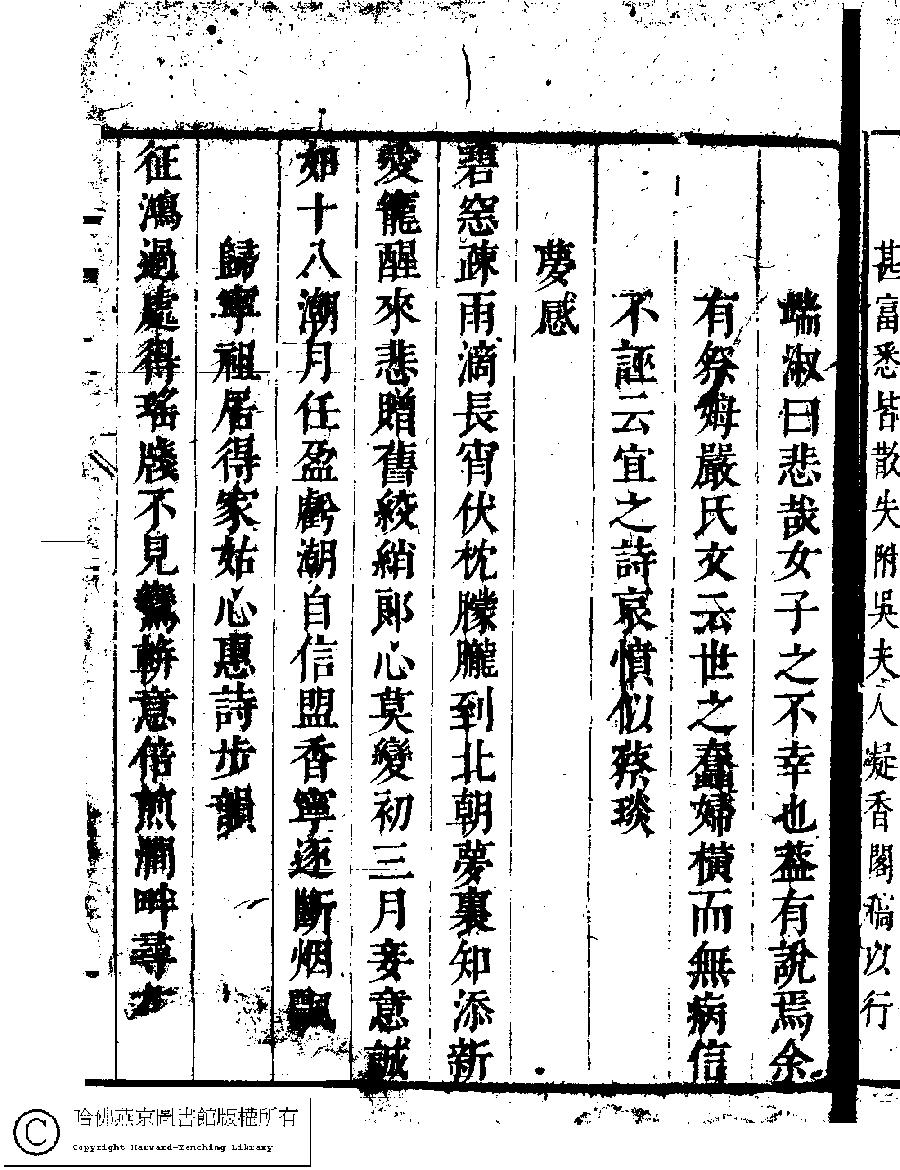 甚富悉皆散失附吳夫人凝香閣稿以行
端淑曰悲哉女子之不幸也蓋有說焉余
有祭姆嚴氏文云世之蠢婦橫而無病信
不誣云宜之詩哀憤似蔡琰
夢感
碧窓疎雨滴長宵伏枕朦朧到北朝夢裏知添新
愛寵醒來悲贈舊綾綃郎心莫變初三月妾意誠
如十八潮月任盈虧潮自信盟香寧逐斷烟飄
歸寧祖居得家姑心惠詩步韻
征鴻過處得瑤牋不見鸞輧意倍煎澗畔尋方
哈佛燕京圖書館版權所有
Copyright Harvard-Yenching Library